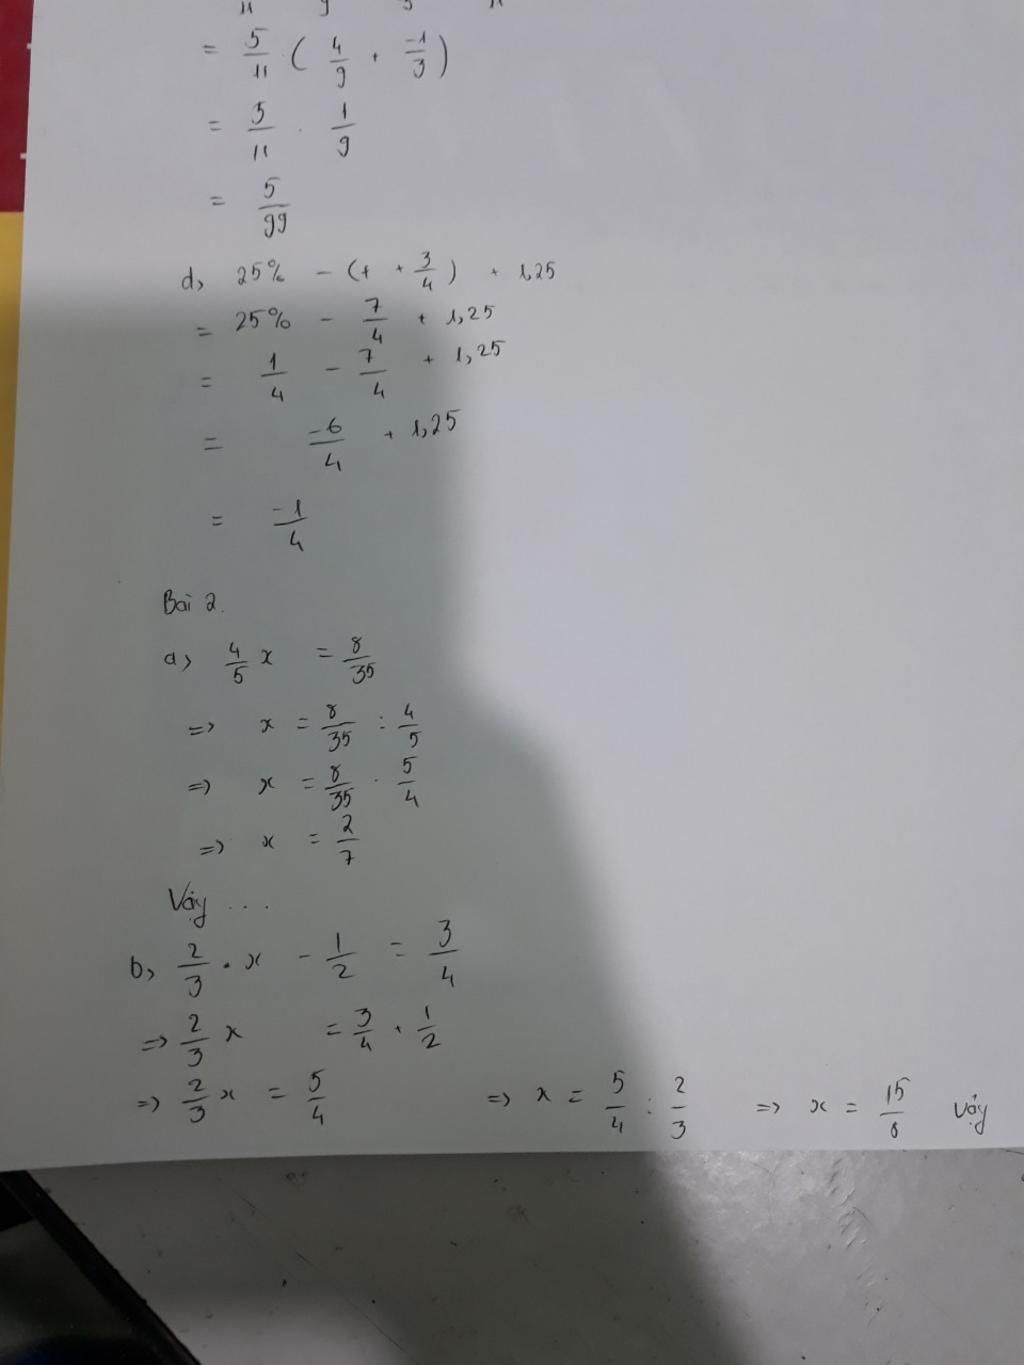 = 5/11 ( 4/9 + -1/3 )
= 5/11 . 1/9
= 5/99
d, 25% - (1 + 3/4) + 1,25
= 25% - 7/4 + 1,25
= 1/4 - 7/4 + 1,25
= -6/4 + 1,25
= -1/4
Bài 2.
a, 4/5 x = 8/35
=> x = 8/35 : 4/5
=> x = 8/35 . 5/4
=> x = 2/7
Vậy ...
b, 2/3 . x - 1/2 = 3/4
=> 2/3 x = 3/4 + 1/2
=> 2/3 x = 5/4 => x = 5/4 : 2/3 => x = 15/8 Vậy